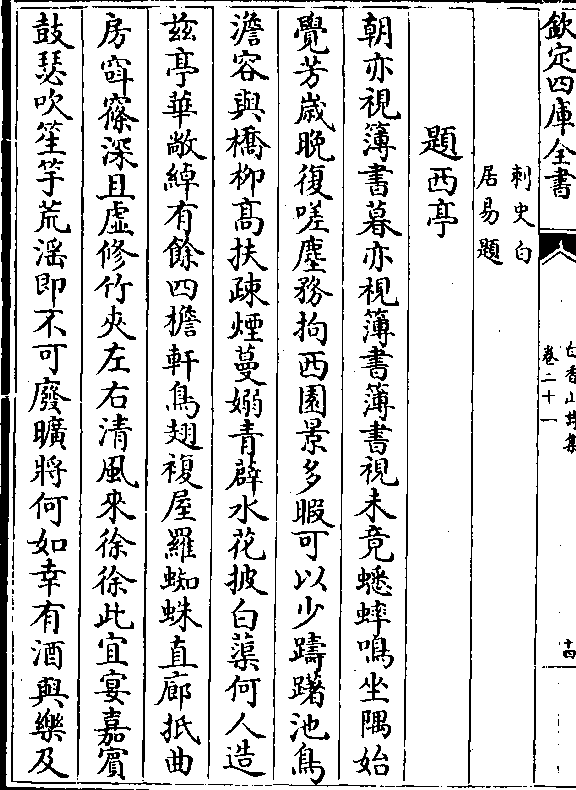 欽定四庫全書
白香山詩集
卷二十一
十四
刺史白
居易題
題西亭
朝亦視簿書暮亦視簿書簿書視未竟蟋蟀鳴坐隅始
覺芳歲晚復嗟塵務拘西園景多暇可以少躊躇池鳥
澹容與橋柳高扶疎煙蔓嫋青薜水花披白蕖何人造
兹亭華敞綽有餘四檐軒鳥翅複屋羅蜘蛛直廊抵曲
房窈窱深且虚修竹夾左右清風來徐徐此宜宴嘉賓
鼓瑟吹笙竽荒滛即不可廢曠將何如幸有酒與樂及